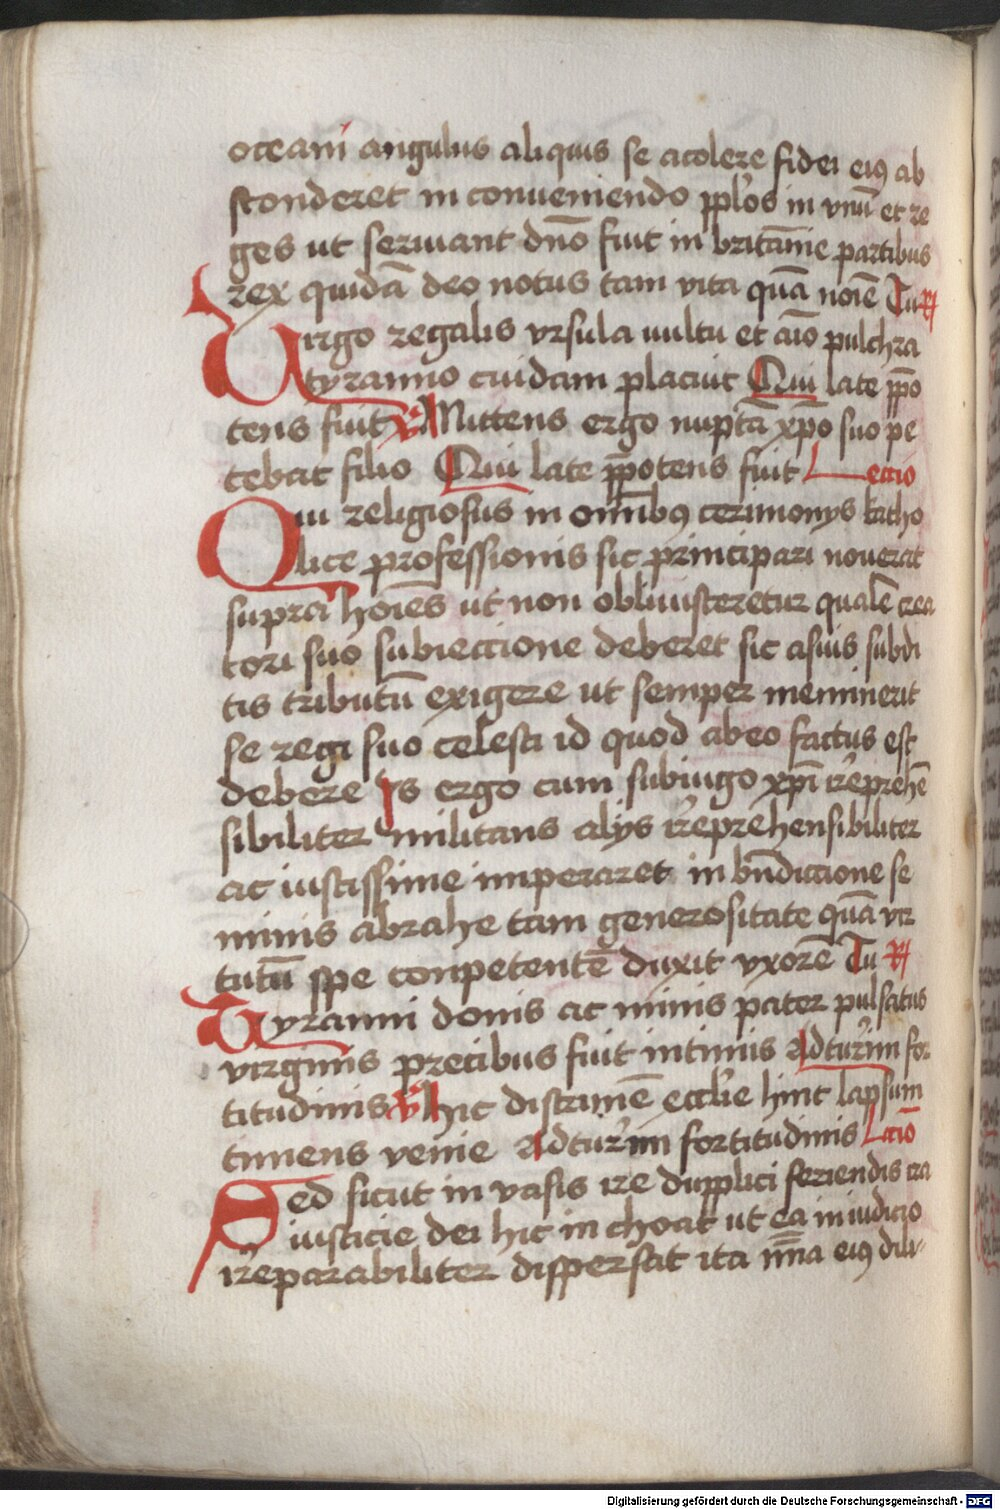 oceani angulus aliquis se a colere fidei eiꝯ ab
sconderet in conveniendo pp̄los in vnū et re
ges ut seruiant dn̄o fuit in britānie partibus
rex quidā deo notus tam vita quā noīe Tu R̷
Uirgo regalis vrsula uultu et aīo pulchra
tyranno cuidam placuit Qui late p̄po
tens fuit V̷ Mittens ergo nuptā xp̄o suo pe
tebat filio Qui late p̄potens fuit Lectio
Qui religiosus in om̄ibꝯ cerimonys katho
lice professionis sic principari nouerat
supra hoīes ut non obliuisceretur qualē crea
tori suo subieccione deberet sic a suis subdi
tis tributū exigere ut semper meminerit
se regi suo celesti id quod ab eo factus est
debere Is ergo cum sub iugo xp̄i irreprehē
sibiliter militans alys irreprehensibiliter
ac iustissime imperaret in bn̄diccione se
minis abrahe tam generositate quā vir
tutū spe conpetentē duxit vxorē Tu R̷
Tyranni donis ac minis pater pulsatus
virginis precibus fuit intimis Ad turrim for
titudinis V̷ Hic discrimē eccl̄ie hinc lapsum
timens venie Ad turrim fortitudinis Lc̄io
Sed sicut in vasis ire dupplici feriendis ira
iusticie dei hic in choat ut ea in iudicio
irreparabiliter dispersat ita mīa eiꝯ dili-
Digitalisierung gefördert durch die Deutsche Forschungsgemeinschaft - DFG